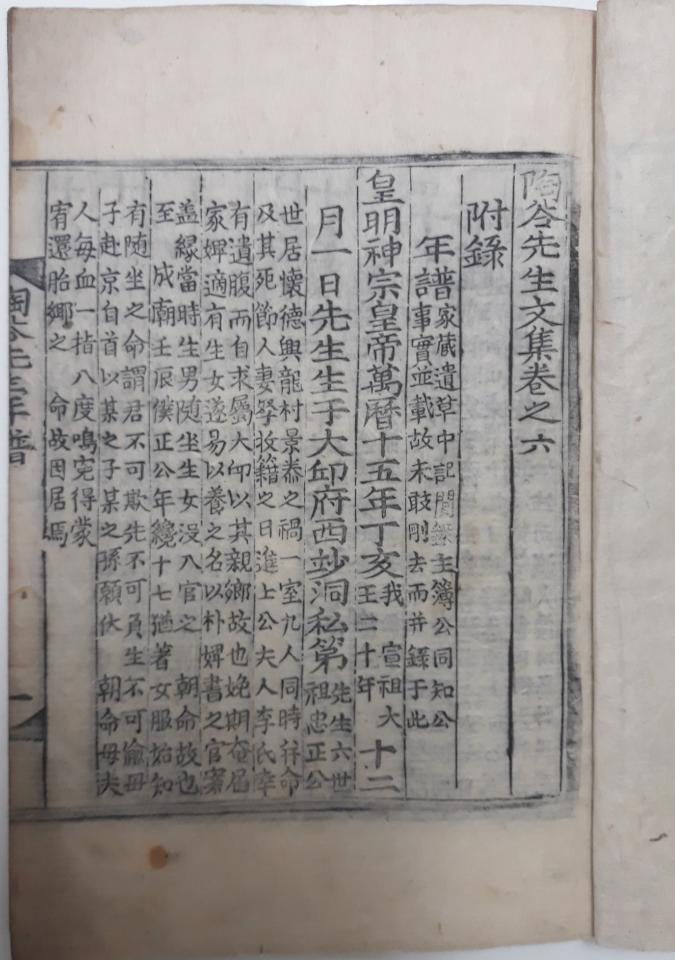 陶谷先生文集卷之六
附錄
年譜 家藏遺草中記聞錄主簿公同知公
事實並載故未敢刪去而并錄于此
皇明神宗皇帝萬曆十五年丁亥 我 宣祖大
王二十年 十二
月一日先生生于大邱府西妙洞私第 先生六世
祖忠正公
世居懷德興龍村景泰之禍一室九人同時倂命
及其死節人妻孥收籍之日進上公夫人李氏卒
有遺腹而自求屬大邱以其親鄉故也娩期奄屆
家婢適有生女遂易以養之名以朴婢書之官案
盖緣當時生男隨坐生女沒入官之 朝命故也
至 成廟壬辰僕正公年纔十七猶著女服始知
有隨坐之命謂君不可欺先不可負生不可偸毋
子赴京自首以某之子某之孫願伏 朝命毋夫
人每血一指八度鳴寃得蒙
宥還胎鄉之 命故因居焉
陶谷先生年譜
一